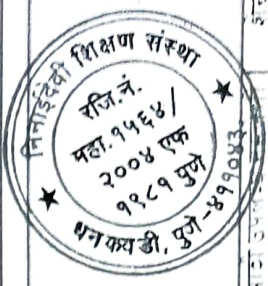 निनाईदेवी शिक्षण संस्था
रजि.नं.
महा.१५६४/
२००४ एफ
१९८१ पुणे
धनकवडी, पुणे-४११०४३.